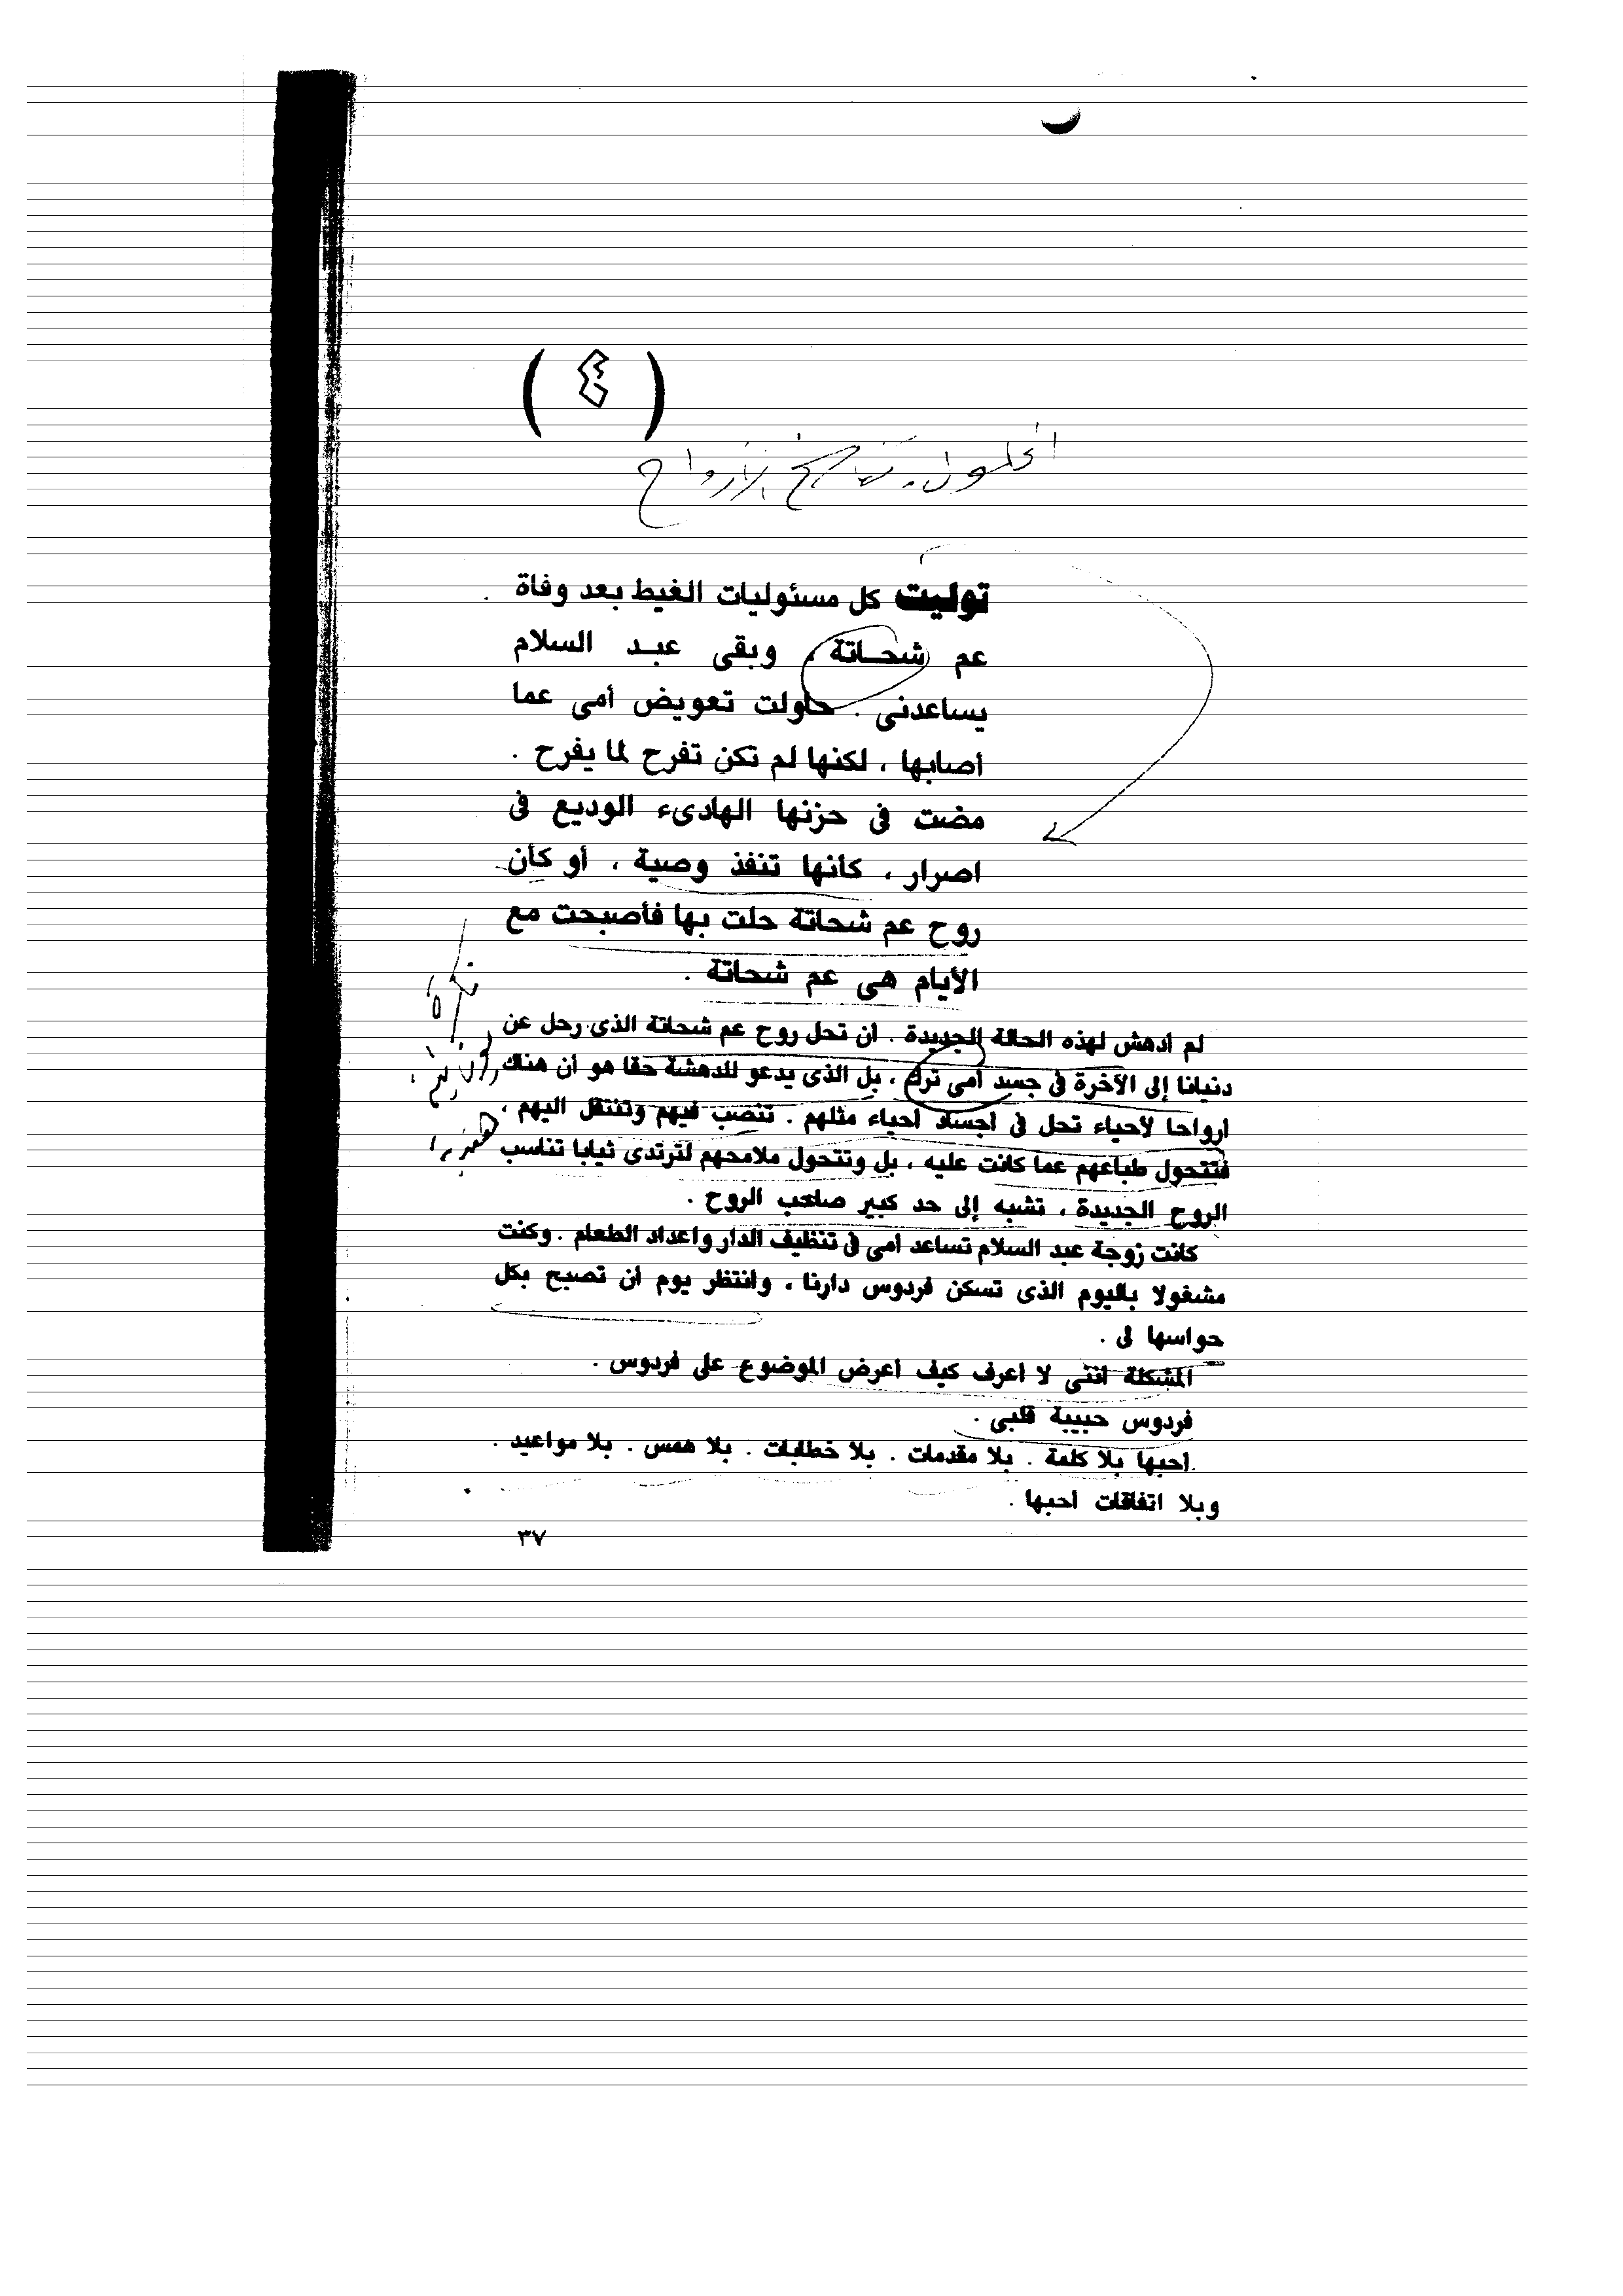 ( ٤ )
الحلول. تناسخ الأرواح
توليت كل مسئوليات الغيط بعد وفاة
عم شحاتة ، وبقى عبد السلام
يساعدنى . حاولت تعويض أمى عما
أصابها ، لكنها لم تكن تفرح لما يفرح .
مضت فى حزنها الهادىء الوديع فى
اصرار ، كأنها تنفذ وصية ، أو كأن
روح عم شحاتة حلت بها فأصبحت مع
الأيام هى عم شحاتة .
لم أدهش لهذه الحالة الجديدة . ان تحل روح عم شحاتة الذى رحل عن
دنيانا إلى الآخرة فى جسد أمى ترك ، بل الذى يدعو للدهشة حقا هو أن هناك
أرواحا لأحياء تحل فى أجساد أحياء مثلهم . تنصب فيهم وتنتقل اليهم ،
فتتحول طباعهم عما كانت عليه ، بل وتتحول ملامحهم لترتدى ثيابا تناسب
الروح الجديدة ، تشبه إلى حد كبير صاحب الروح .
كانت زوجة عبد السلام تساعد أمى فى تنظيف الدار واعداد الطعام . وكنت
مشغولا باليوم الذى تسكن فردوس دارنا ، وأنتظر يوم أن تصبح بكل
حواسها لى .
المشكلة اننى لا أعرف كيف أعرض الموضوع على فردوس .
فردوس حبيبة قلبى .
أحبها بلا كلمة . بلا مقدمات . بلا خطابات . بلا همس . بلا مواعيد .
وبلا اتفاقات أحبها .
٣٧